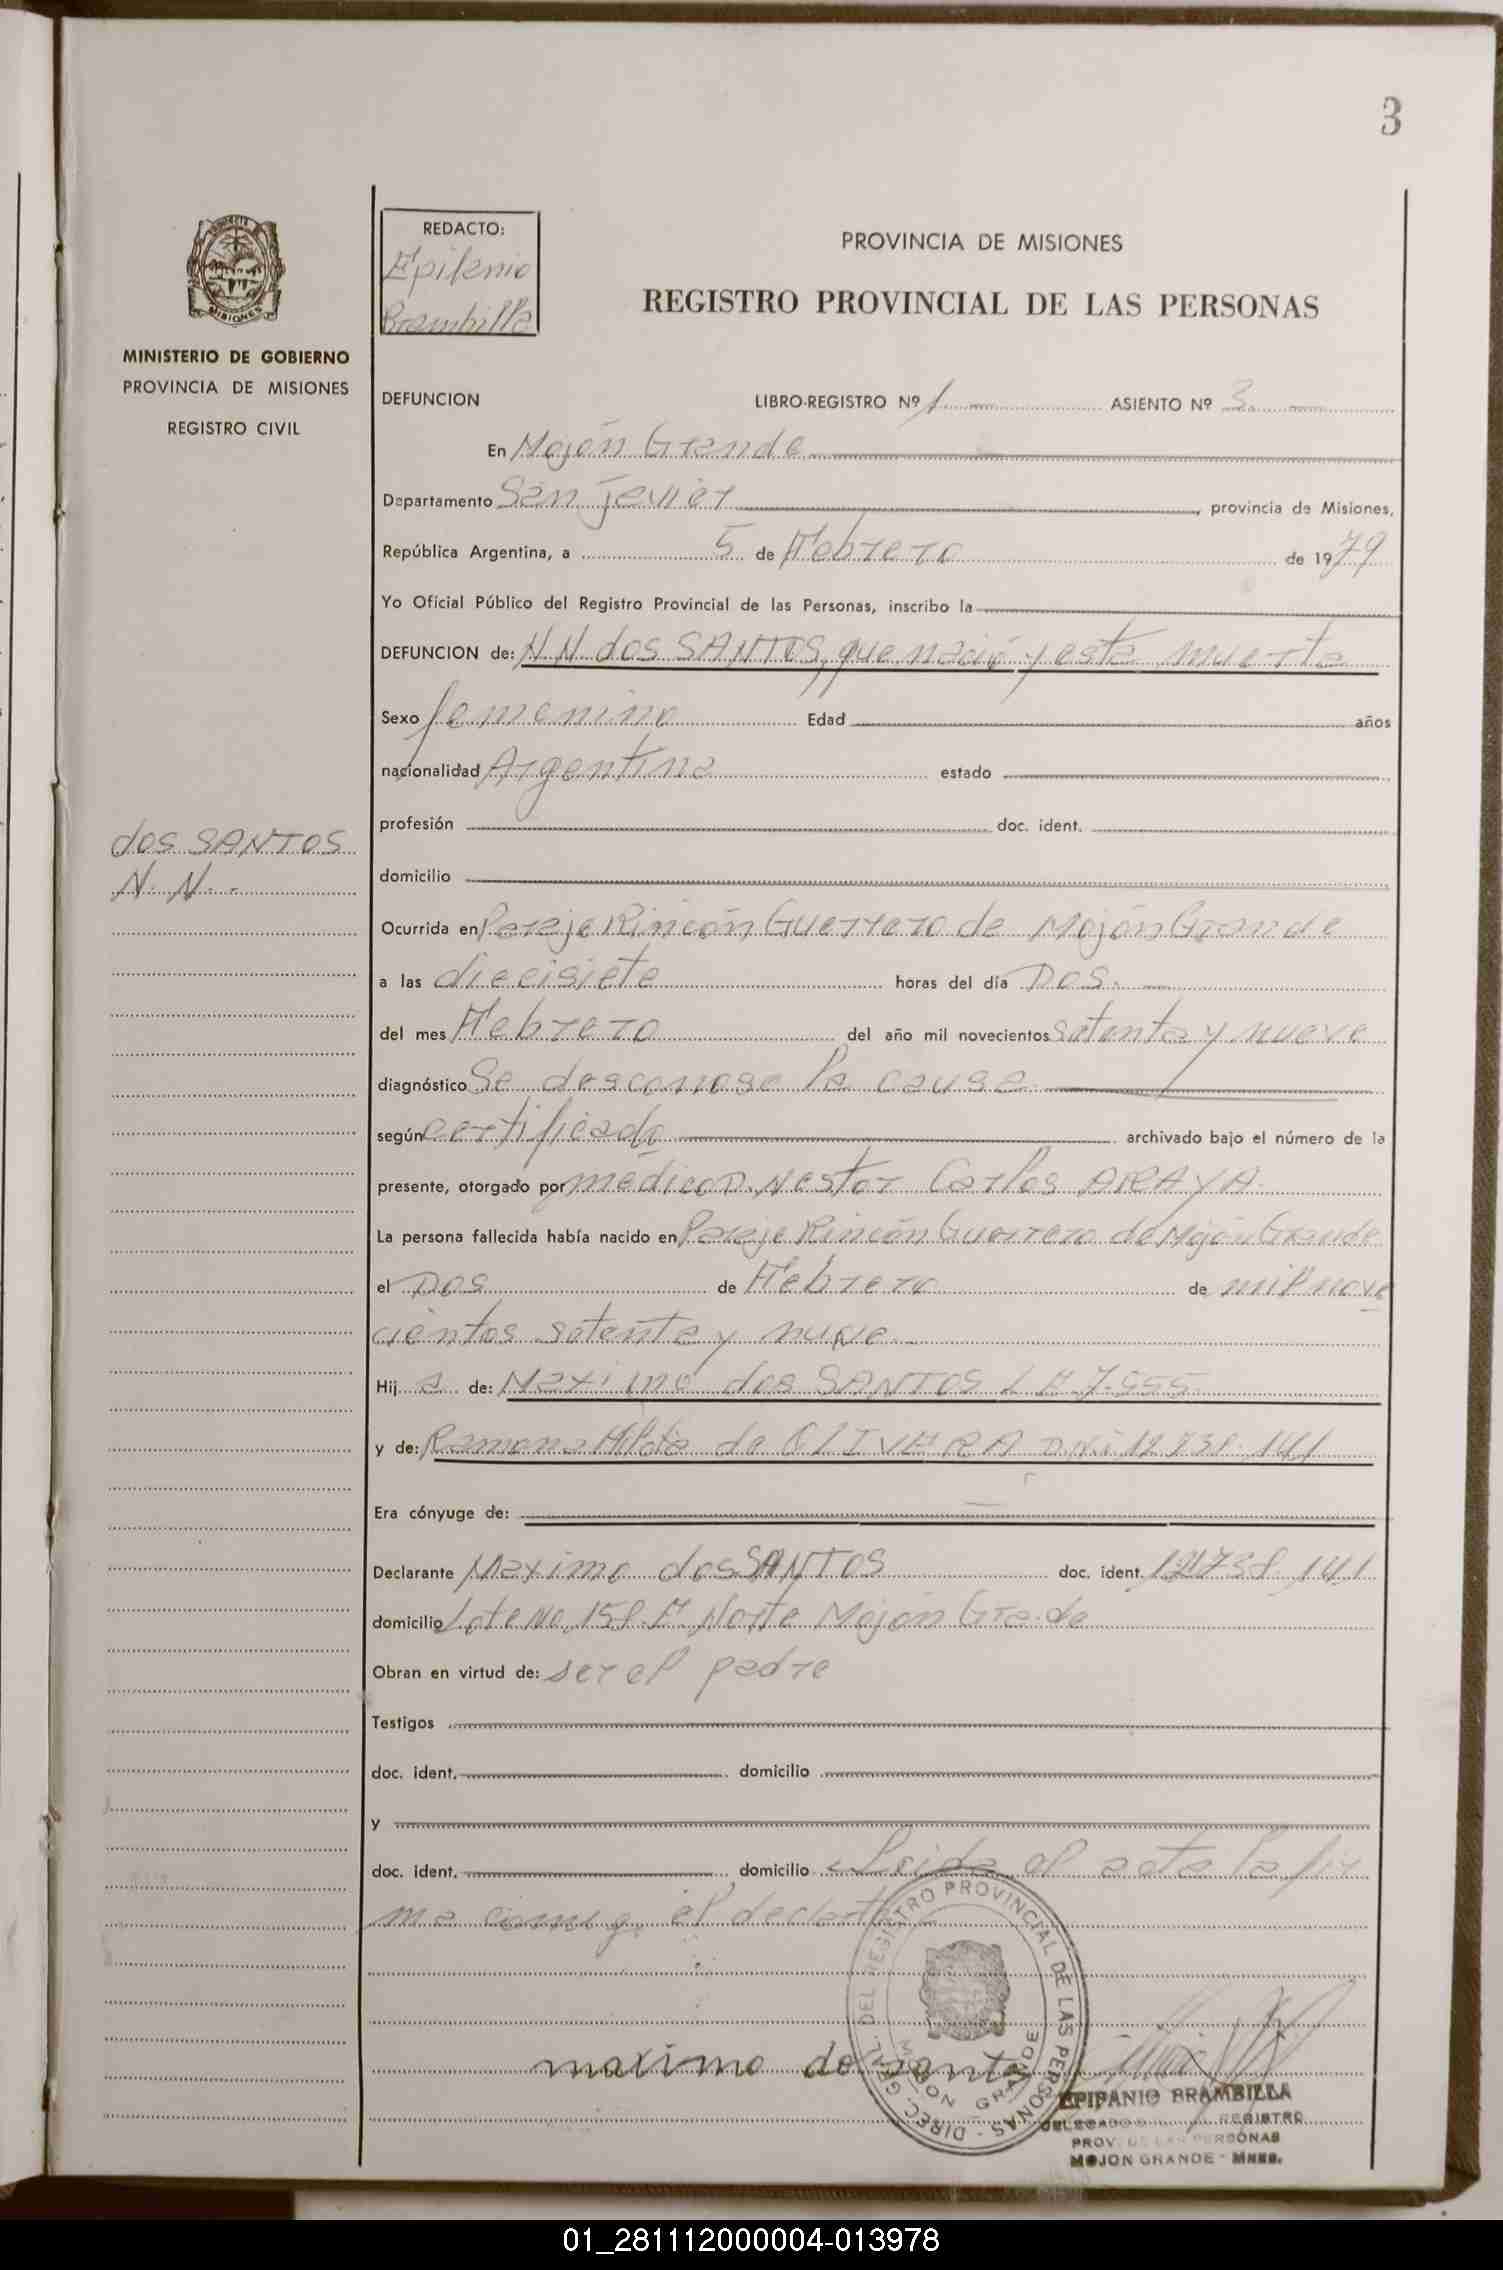 3
REDACTO:
Epifanio
Brambilla
PROVINCIA DE MISIONES
REGISTRO PROVINCIAL DE LAS PERSONAS
MISIONES
MINISTERIO DE GOBIERNO
PROVINCIA DE MISIONES
REGISTRO CIVIL
DEFUNCION LIBRO-REGISTRO Nº 1 ASIENTO Nº 3
En Mojón Grande
Departamento San Javier, provincia de Misiones,
República Argentina, a 5 de Febrero de 1979
Yo Oficial Público del Registro Provincial de las Personas, inscribo la
DEFUNCION de: N N dos SANTOS, que nació y esta muerta
Sexo femenino Edad años
nacionalidad Argentina estado
profesión doc. ident.
dos SANTOS
N. N.
domicilio
Ocurrida en Paraje Rincón Guerrero de Mojón Grande
a las diecisiete horas del día Dos.
del mes Febrero del año mil novecientos setenta y nueve
diagnóstico Se desconose la causa
según certificado archivado bajo el número de la
presente, otorgado por médico D. Nestor Carlos ARAYA.
La persona fallecida había nacido en Paraje Rincón Guerrero de Mojón Grande
el Dos de Febrero de mil nove
cientos setenta y nueve
Hij a de: Maximo dos SANTOS L E 7.555
y de: Ramona Hilda de OLIVERA D.N.I. 12.738.141
Era cónyuge de:
Declarante Maximo dos SANTOS doc. ident. 12.738.141
domicilio Lote No 158. F. Norte Mojón Gra.de
Obran en virtud de: ser el padre
Testigos
doc. ident. domicilio
y
doc. ident. domicilio Leida el acta la fir
ma comig. el declarte
DIREC. GEN. DEL REGISTRO PROVINCIAL DE LAS PERSONAS
MOJON GRANDE
maximo do santos
EPIFANIO BRAMBILLA
DELEGADO REGISTRO
PROV. DE LAS PERSONAS
MOJON GRANDE - Mnes.
01_281112000004-013978